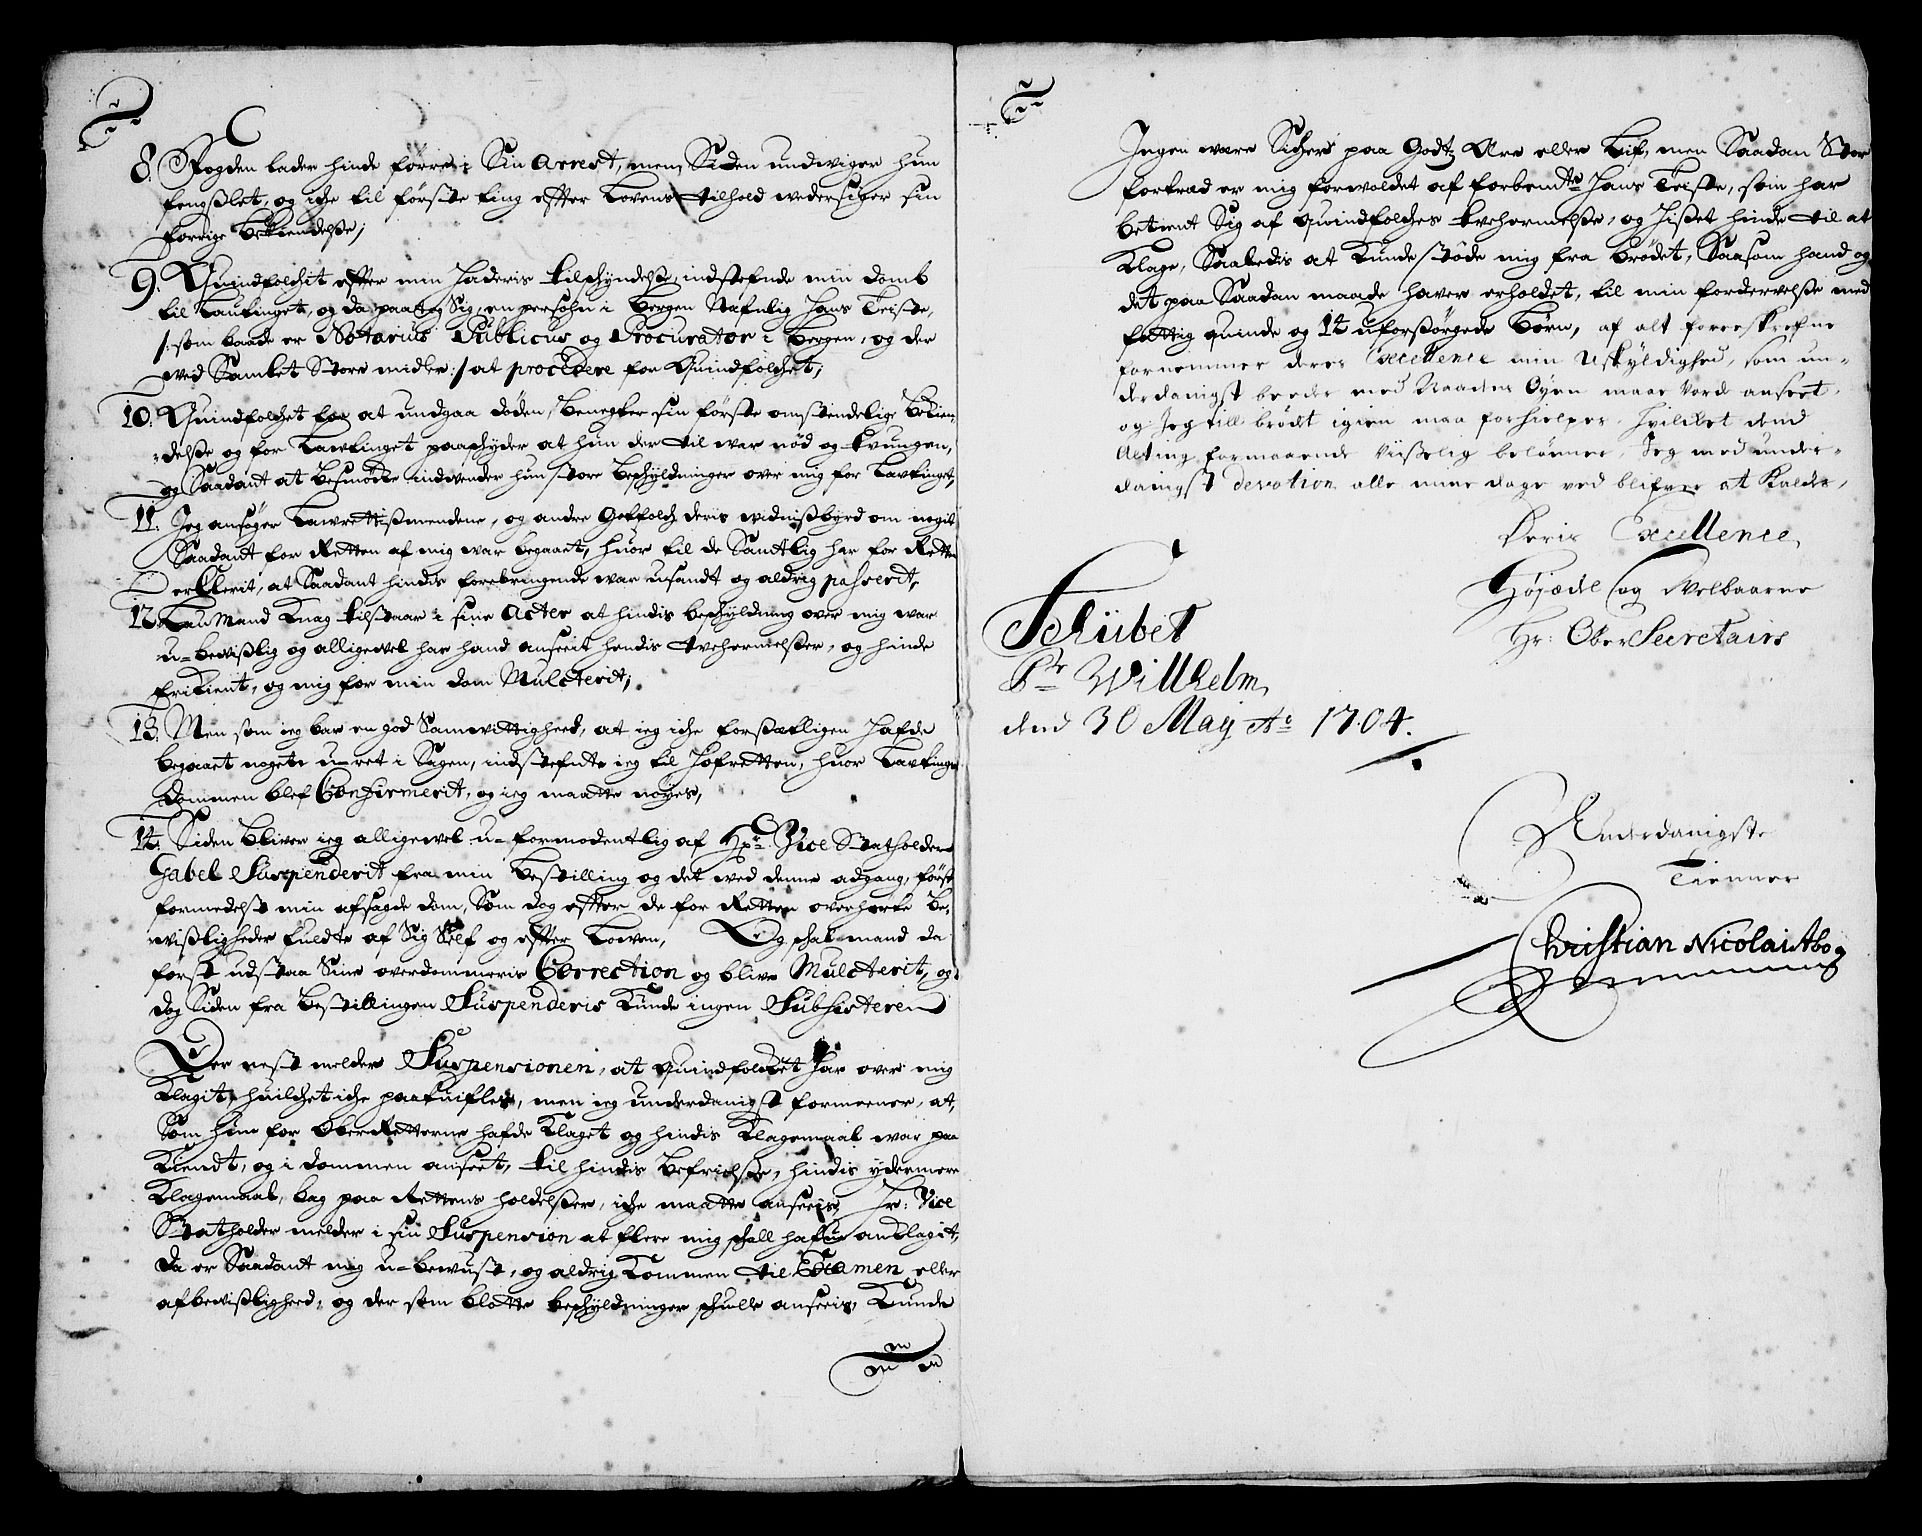 8. Fogden lader hinde føre i Sin Arrest, mens Siden undviger hun
fengslet, og iche til første ting effter Lovens tilhold wedersiger sin
forrige bekiendelse,
9. Quindfolchit effter min Haderis tilschyndelse indstefnde min domb
til Laugtinget, og da paatog Sig en persohn i Bergen Nafnlig Hans Teiste,
/: som baade er Notarius Publicus og Procurator i Bergen, og der
wed Samlet Store midler :/ at procedere for Quindfolchet,
10. Quindfolchet for at undgaa døden, benegter sin første omstendelige bekien-
delse og for Lavtinget paaschyder at hun der til war nød og tvungen,
og Saadant at besmøcke indwender hun store beschyldninger over mig for Lavtinget,
11. Jeg ansøger Lawrettismendene, og andre Gotfolch deris widnisbyrd om noget
Saadant for Retten af mig war begaaet, huor til de Samtlig har for Retten
erklerit, at Saadant hindis forebringende war usandt og aldrig passerit,
12. Laumand Knag tilstaar i sine Acter at hindis beschyldning over mig war
u-bewislig og alligewel har hand anseet hendis Weherwelser, og hinde
frikient, og mig for min dom Mulcterit,
13. Men som jeg bar en god Samwittighed, at jeg iche forsætligen hafde
begaaet noget u-ret i Sagen, indstefnte jeg til Hofretten, huor Lavtings
dommen blef Confirmerit, og jeg maatte nøyes,
14. Siden bliver jeg alligewel u-formodentlig af Hr. Vice Statholder
Gabel Suspenderit fra min bestilling og det wed denne adgang, først
formedelst min afsagde dom, Som dog effter de for Retten overhørte be-
wisligheder fuldte af Sig Self og effter Lowen, Og schal mand da
først udstaa Sine overdommeris Correction og blive Mulcterit, og
dog Siden fra bestillingen Suspenderis kunde ingen Subsistere
Der nest melder Suspensionen, at Quindfolchet har over mig
klagit, huilchet iche paatuifles, men jeg underdanigst formeener, at,
Som hun for OberRetterne hafde klaget og hindis klagemaal war paa
kiendt, og i dommen anseet, til hindis befrielse, hindis ydermere
klagemaal, bag paa Rettens holdelser, iche maatte anseeis, Hr: Vice
Statholder melder i sin Suspension at flere mig schall hafue anklagit,
da er Saadant mig u-bewust, og aldrig kommen til Examen eller
afbewislighed, og der som blotte beschyldninger schulle anseeis, kunde
Ingen wære Sicher paa Godtz Ære eller Lif, men Saadan Stor
fortræd er mig forwoldet af forbente Hans Teiste, som har
betient Sig af quindfolches Weherwelse, og hisset hinde til at
klage, Saaledis at kunde støde mig fra brødet, Saasom hand og
det paa Saadan maade haver erholdet, til min fordervelse med
fattig quinde og 14 uforsørgede børn, af alt foreskrefne
fornemmer deres Excellence min Uskyldighed, som un-
derdanigst beeder med Naadens Øyen maae vorde anseet,
og Jeg till brødt igien maa forhielpes, hvilket dend
Alting formaaende Visselig belønner, Jeg med under-
danigst devotion alle mine dage ved blifver at kalde,
Deris Excellence
Høyædle og Welbaarne
Hr: Ober Secretairs
Schübet
Pr Wilhelm
dend 30 Maij Ao 1704.
Underdanigste
Tienner
Christian Nicolai Abo